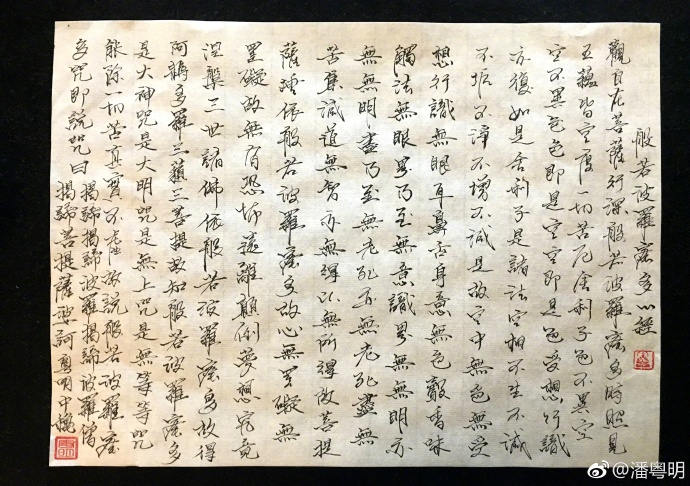 般若波羅蜜多心經
觀自在菩薩行深般若波羅蜜多時照見
五蘊皆空度一切苦厄舍利子色不異空
空不異色色即是空空即是色受想行識
亦復如是舍利子是諸法空相不生不滅
不垢不淨不增不減是故空中無色無受
想行識無眼耳鼻舌身意無色聲香味
觸法無眼界乃至無意識界無無明亦
無無明盡乃至無老死亦無老死盡無
苦集滅道無智亦無得以無所得故菩提
薩埵依般若波羅蜜多故心無罣礙無
罣礙故無有恐怖遠離顛倒夢想究竟
涅槃三世諸佛依般若波羅蜜多故得
阿耨多羅三藐三菩提故知般若波羅蜜多
是大神咒是大明咒是無上咒是無等等咒
能除一切苦真實不虛故說般若波羅蜜
多咒即說咒曰 揭諦揭諦波羅揭諦波羅僧
揭諦菩提薩婆訶 粵明中
@潘粵明